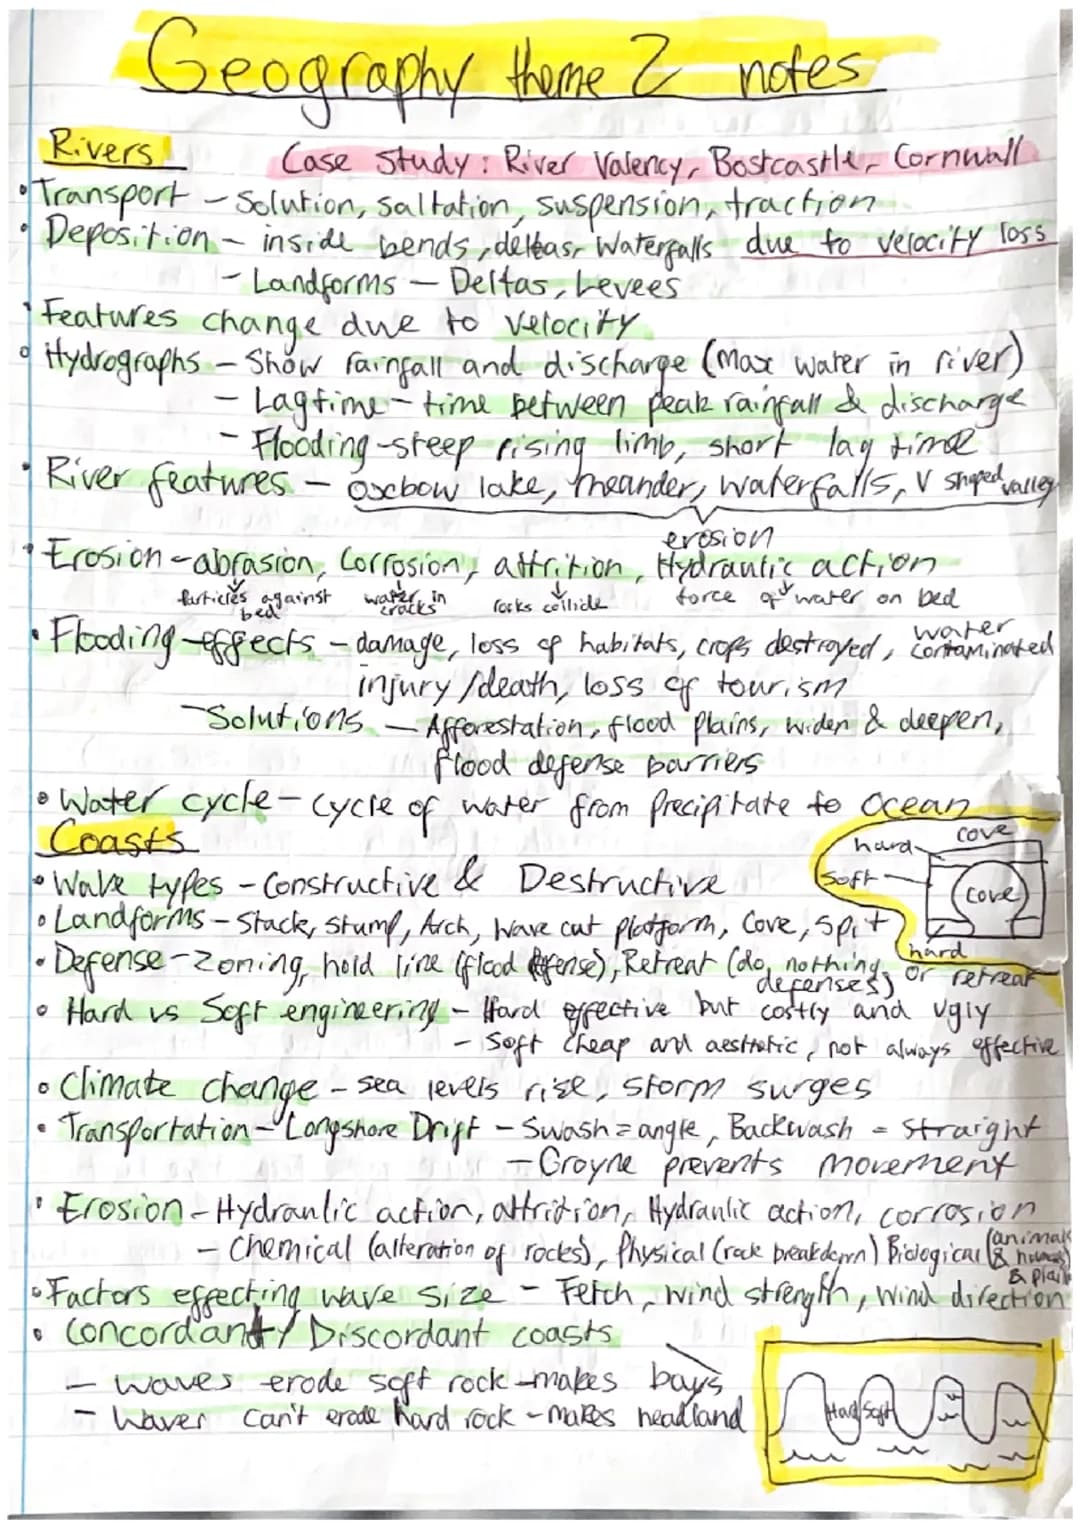 Geography theme 2 notes
Rivers
Case Study: River Valency, Bostcastle, Cornwall
• Transport – Solution, saltation, suspension, traction
• Deposition – inside bends, deltas, Waterfalls due to velocity loss
– Landforms – Deltas, Levees
• Features change due to velocity
• Hydrographs – Show rainfall and discharge (Max water in river)
– Lag time – time between peak rainfall & discharge
– Flooding – steep rising limb, short lag time
• River features – oxbow lake, meander, waterfalls, V shaped valley
erosion
• Erosion – abrasion, Corrosion, attrition, Hydraulic action
Particles against bed
water in cracks
rocks collide
force of water on bed
• Flooding – effects – damage, loss of habitats, crops destroyed, water contaminated
injury/death, loss of tourism
– Solutions – Afforestation, flood plains, widen & deepen,
flood defense barriers
• Water cycle – cycle of water from Precipitate to Ocean
Coasts
hard
cove
soft
Cove
hard
• Wave types – Constructive & Destructive
• Landforms – Stack, Stump, Arch, Wave cut platform, Cove, Spit
• Defense – Zoning, hold line (flood defense), Retreat (do nothing, or retreat
defenses)
• Hard vs Soft engineering – Hard effective but costly and ugly
– Soft cheap and aesthetic, not always effective
• Climate change – sea levels rise, storm surges
• Transportation – Longshore Drift – Swash = angle, Backwash = straight
– Groyne prevents movement
• Erosion – Hydraulic action, attrition, Hydraulic action, corrosion
– Chemical (alteration of rocks), Physical (rock breakdown) Biological (animals
& plants
• Factors effecting wave size – Fetch, wind strength, wind direction
• Concordant/ Discordant coasts
– waves erode soft rock – makes bays
– Waves can't erode hard rock – makes headland
Hard Soft